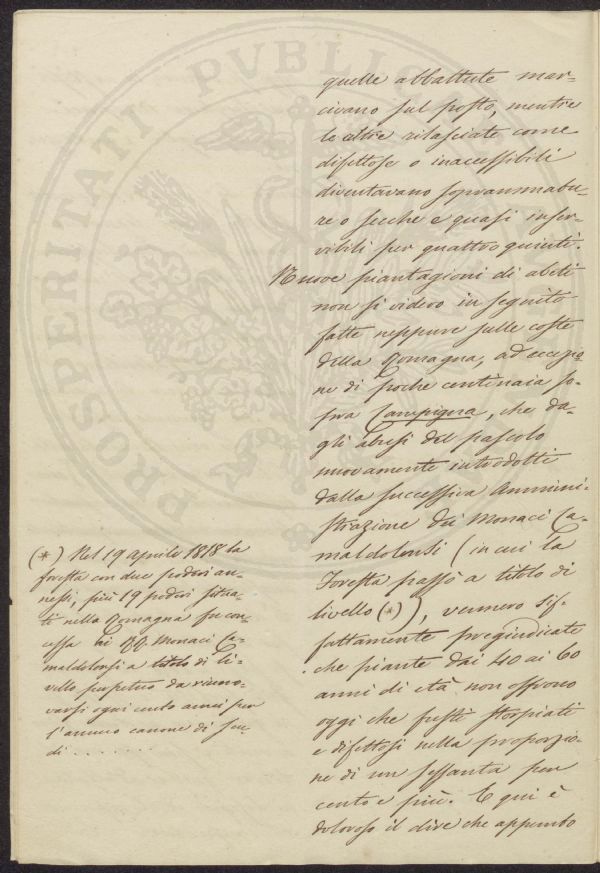 PROSPERITATI PVBLICAE AVGENDAE
quelle abbattute mar-
civano sul posto, mentre
le altre rilasciate come
difettose o inaccessibili
diventavano soprammatu-
re o secche e quasi inser-
vibili per quattro quinti.
Nuove piantagioni di abeti
non si videro in seguito
fatte neppure sulle coste
della Romagna, ad eccezio-
ne di poche centinaia so-
pra Campigna, che da-
gli abusi del pascolo
nuovamente introdotti
dalla successiva Ammini-
strazione dei Monaci Ca-
maldolensi (in cui la
Foresta passò a titolo di
livello (*)), vennero sif-
fattamente pregiudicate
che piante dai 40 ai 60
anni di età non offrono
oggi che fusti storpiati
e difettosi nella proporzio-
ne di un sessanta per
cento e più. E qui è
doloroso il dire che appunto
(*) Nel 19 aprile 1818 la
foresta con due poderi an-
nessi, più 19 poderi situa-
ti nella Romagna fu con-
cessa ai RR. Monaci Ca-
maldolensi a titolo di li-
vello perpetuo da rinno-
varsi ogni cento anni per
l'annuo canone di scu-
di . . . . . . . .